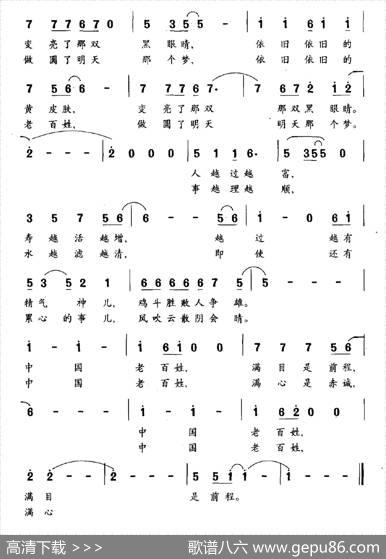 7 7 7 6 7 0 5 3 5 5 - 1 1 6 1 1
变 亮 了 那 双 黑 眼 睛, 依 旧 依 旧 的
做 圆 了 明 天 那 个 梦, 依 旧 依 旧 的
7 5 6 6 - 7 7 7 6 7· 7 6 7 2 1 2
黄 皮 肤, 变 亮 了 那 双 那 双 黑 眼 睛。
老 百 姓, 做 圆 了 明 天 明 天 那 个 梦。
2 - - - 2 0 0 0 5 1 1 6· 5 3 5 5 0
人 越 过 越 富,
事 越 理 越 顺,
3 5 7 5 6 6 - - 5 6 1 - 0 6 1
寿 越 活 越 增, 越 过 越 有
水 越 滤 越 清, 即 使 还 有
5 3 5 2 1 6 6 6 6 6 7 5 5 - -
精 气 神 儿, 鸡 斗 胜 敢 人 争 雄。
累 心 的 事 儿, 风 吹 云 散 阴 会 晴。
1 - 1 - 1 6 1 0 0 7 7 7 5 6
中 国 老 百 姓, 满 目 是 前 程,
中 国 老 百 姓, 满 心 是 赤 诚,
6 - - - 1 - 1 - 1 6 2 0 0
中 国 老 百 姓,
中 国 老 百 姓,
2 2 - - 2 - - 2 5 5 1 1 - - - 1 0 0 0
满 目 是 前 程。
满 心
高清下载 >>> 歌谱八六 www.gepu86.com